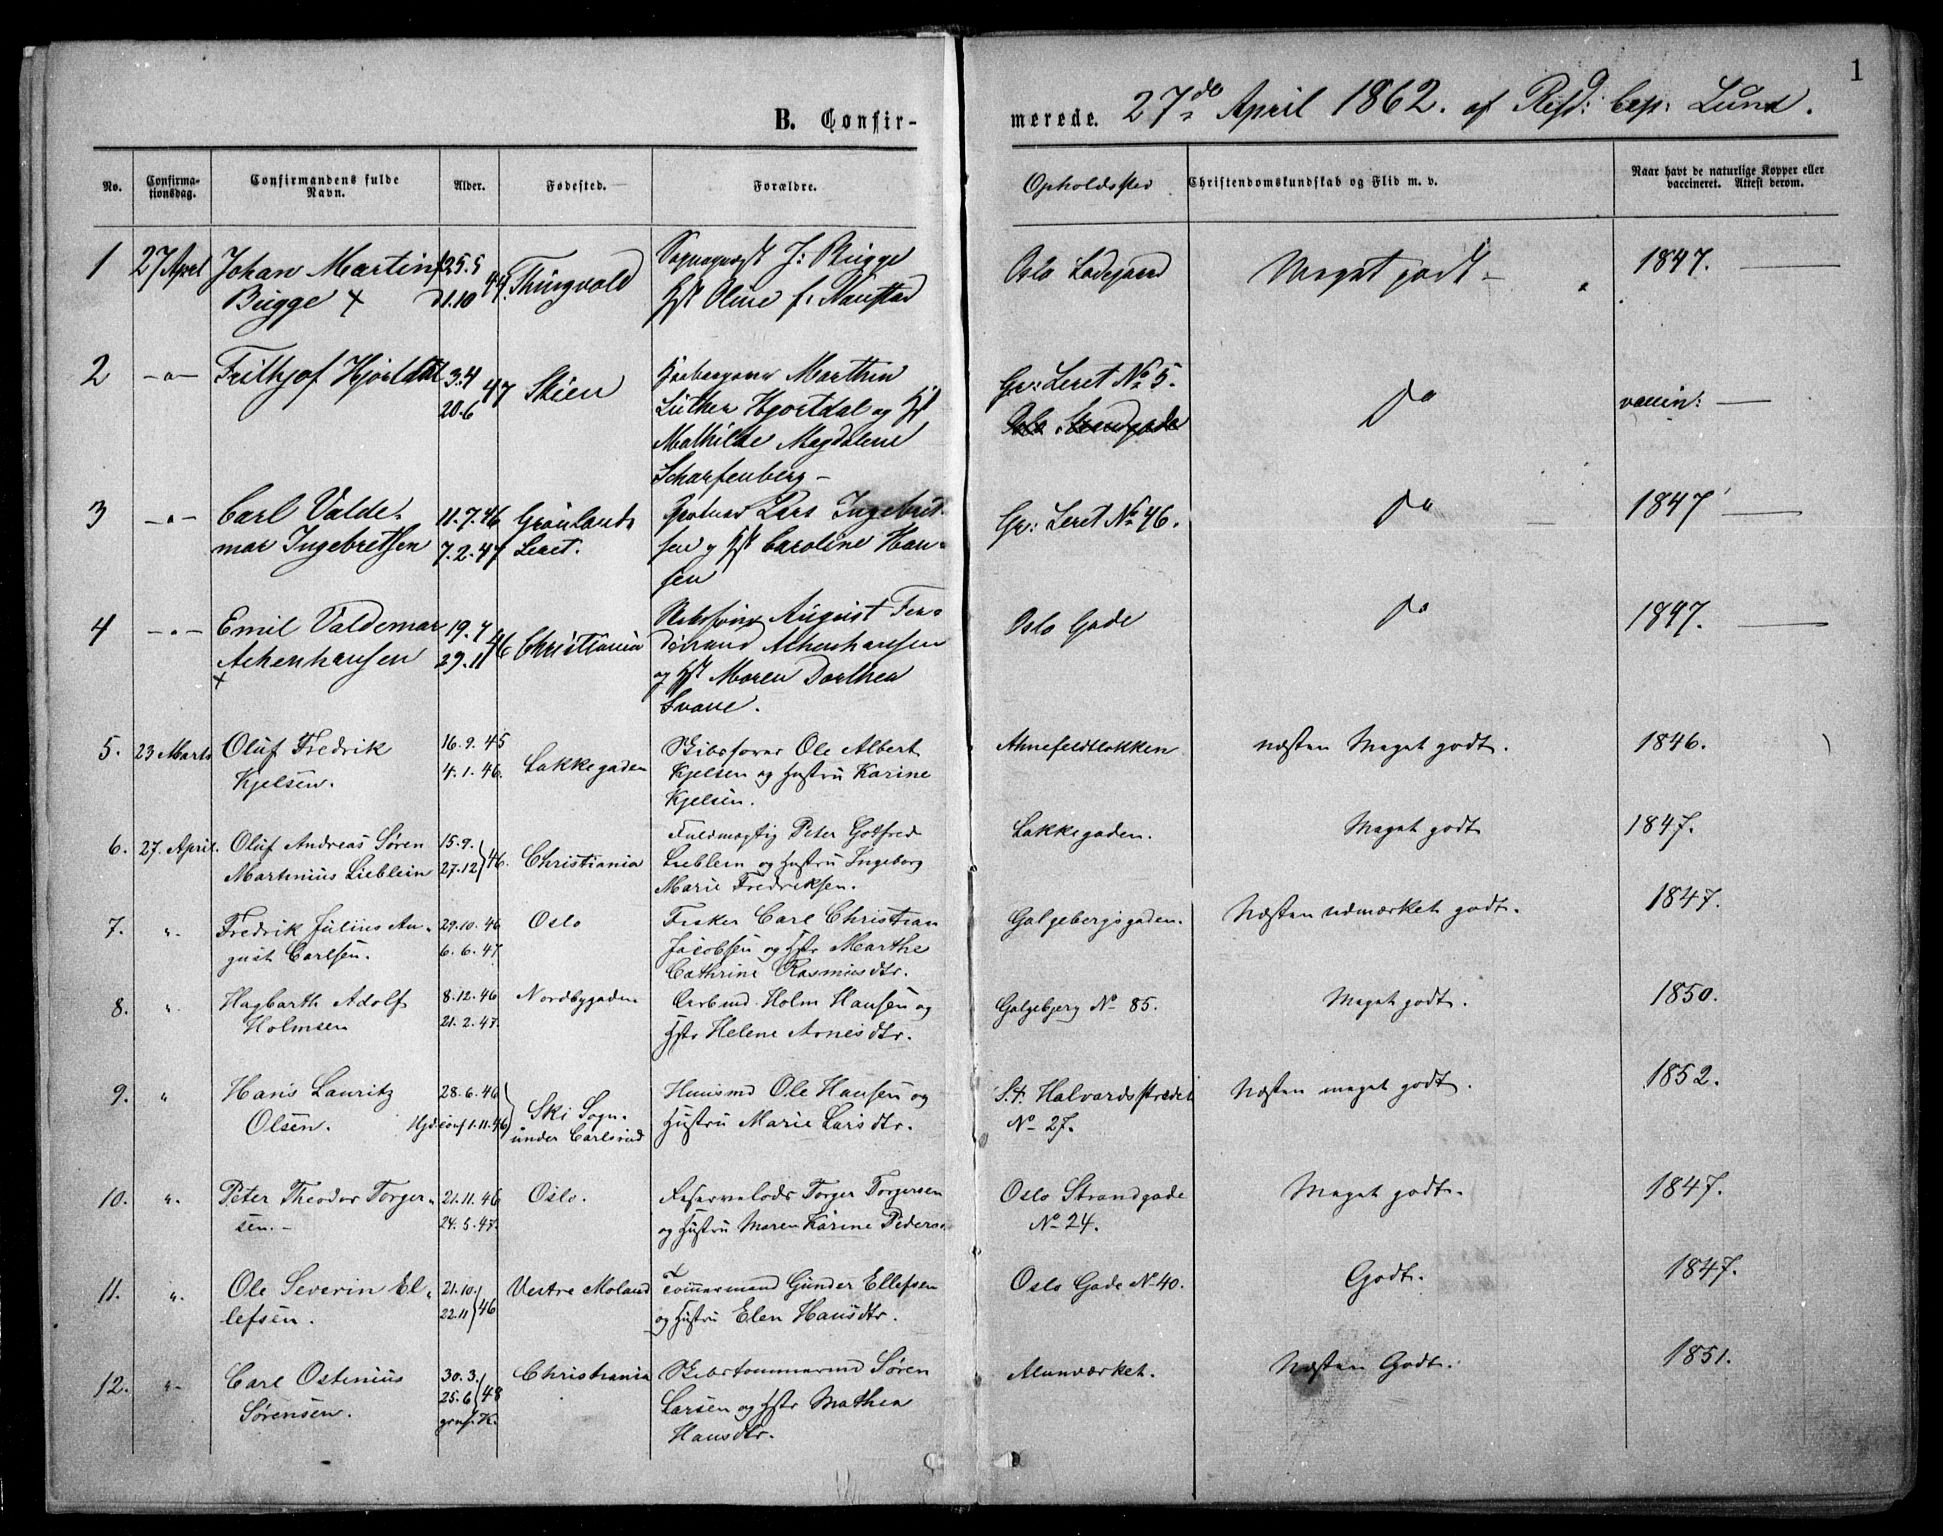 1
B. Confir-
merede. 27de April 1862. af Resd: Cap: Lund.
No.
Confirma-
tionsdag.
Confirmandens fulde
Navn.
Alder.
Fødested.
Forældre.
Opholdssted
Christendomskundskab og Flid m. v.
Naar havt de naturlige Kopper eller
vaccineret. Attest derom.
1 27 April Johan Martin f 25.5 Thingvold J: Bugge Oslo Ladegaard Meget godt - 1847. —
Bugge + d 1.10 44. Hst Oline f: Naustad
2 -"- Frithjof Hjortdal 3.4 47 Skien Marthin Gr: Leret No 5. do vaccin: —
20.6 Luther Hjortdal og Hst Oslo Strandgade
Mathilde Magdalene
Scharfenberg -
3 -"- Carl Valde- 11.7.46 Grønlands Lars Ingebret- Gr: Leret No 46. do 1847 —
mar Ingebretsen 7.2.47 Leret. sen og Hst Caroline Han-
sen
4 -"- Emil Valdemar 19.7 46 Christiania August Fer- Oslo Gade do 1847. —
Achenhausen 29.11 dinand Achenhausen
+ og Hst Maren Dorthea
Svane.
5. 23 Marts Oluf Fredrik 16.9.45 Lakkegaden Skibsfører Ole Albert Ahnefeldtløkken næsten Meget godt. 1846.
Kjelsen. 4.1.46. Kjelsen og Hustru Karine
Kjelsen.
6. 27. April. Oluf Andreas Søren 15.9. 46. Christiania Fuldmægtig Peter Gotfred Lakkegaden. Meget godt 1847.
Martinius Lieblein 27.12 Lieblein og Hustru Ingeborg
Marie Fredriksen.
7. ". Fredrik Julius Au- 29.10.46 Oslo Fisker Carl Christian Galgebergsgaden. Næsten udmærket godt. 1847.
gust Carlsen. 6.6.47 Jacobsen og Hstr Marthe
Cathrine Rasmusdtr.
8. ". Hagbarth Adolf 8.12.46 Nordbygaden Arbmd. Holm Hansen og Galgebjerg No 85. Meget godt. 1850.
Holmsen 21.2.47. Hstr Helene Arnesdtr.
9. " Hans Lauritz 28.6.46 Ski Sogn. Huusmd Ole Hansen og St. Halvardsstrædet Næsten meget godt. 1852.
Olsen. Hjd: conf 1.11.46 under Carlsrud Hustru Marie Larsdtr. No 27.
10. ". Peter Theodor Torger- 21.11.46 Oslo. Reservelods Torger Torgersen Oslo Strandgade Meget godt. 1847.
sen. - 24.5.47. og Hustru Maren Karine Peders No 24.
11. ". Ole Severin El- 21.10. 46 Vestre Moland Tømmermand Gunder Ellefsen Oslo Gade No 40. Godt. 1847.
lefsen. 22.11 og Hustru Elen Hansdtr.
12. ". Carl Ostinius 30.3. 48 Christiania Skibstømmermd Søren Alunværket. Næsten Godt. 1851.
Sørensen. 25.6 Larsen og Hstr Mathea
K. Hansdtr.